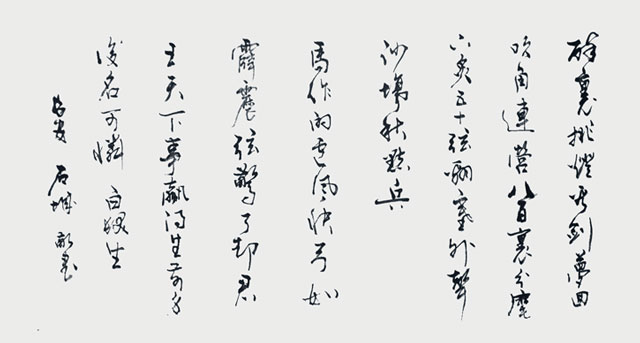 醉裏挑燈看劍夢回
吹角連營八百裏分麾
下炙五十弦翻塞外聲
沙場秋點兵
馬作的盧風快弓如
霹靂弦驚了却君
王天下事贏得生前身
後名可憐白髮生
石城